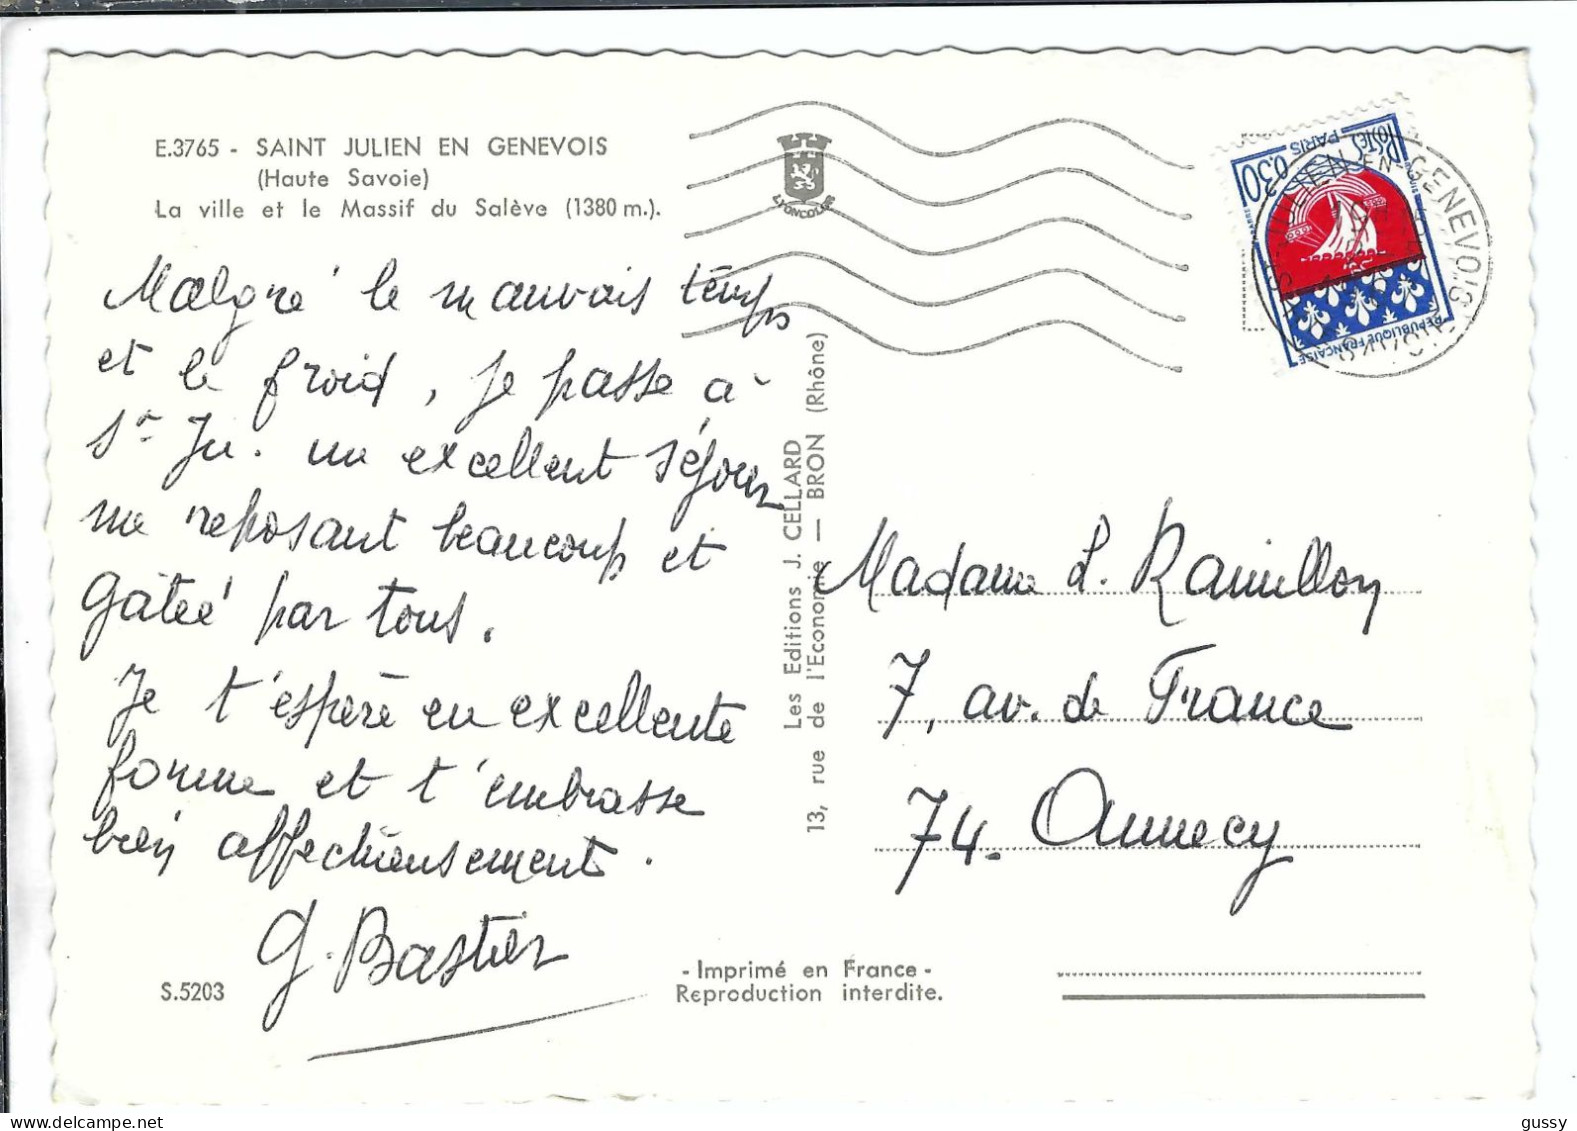 E.3765 - SAINT JULIEN EN GENEVOIS
(Haute Savoie)
La ville et le Massif du Salève (1380 m.).
LYONCOLOR
Malgré le mauvais temps
et le froid, je passe à
St Ju. un excellent séjour
me reposant beaucoup et
gâtée par tous.
Je t'espère en excellente
forme et t'embrasse
bien affectueusement.
G. Bastier
S.5203
Les Editions J. CELLARD
13, rue de l'Economie — BRON (Rhône)
- Imprimé en France -
Reproduction interdite.
0,30 POSTES PARIS
REPUBLIQUE FRANÇAISE
JULIEN-EN-GENEVOIS
Madame L. Ramillon
7, av. de France
74. Annecy
gussy